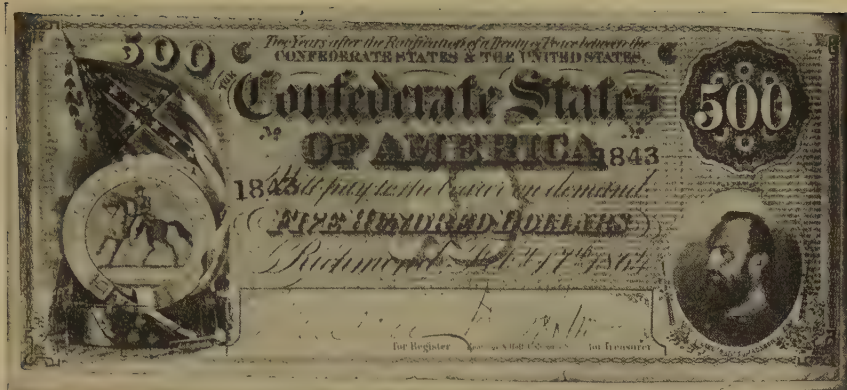 500
Two Years after the Ratification of a Treaty of Peace between the
CONFEDERATE STATES & THE UNITED STATES,
THE
Confederate States
500
OF AMERICA
1843
1843
Will pay to the bearer on demand
FIVE HUNDRED DOLLARS
Richmond Feb. 17th 1864
for Register
for Treasurer